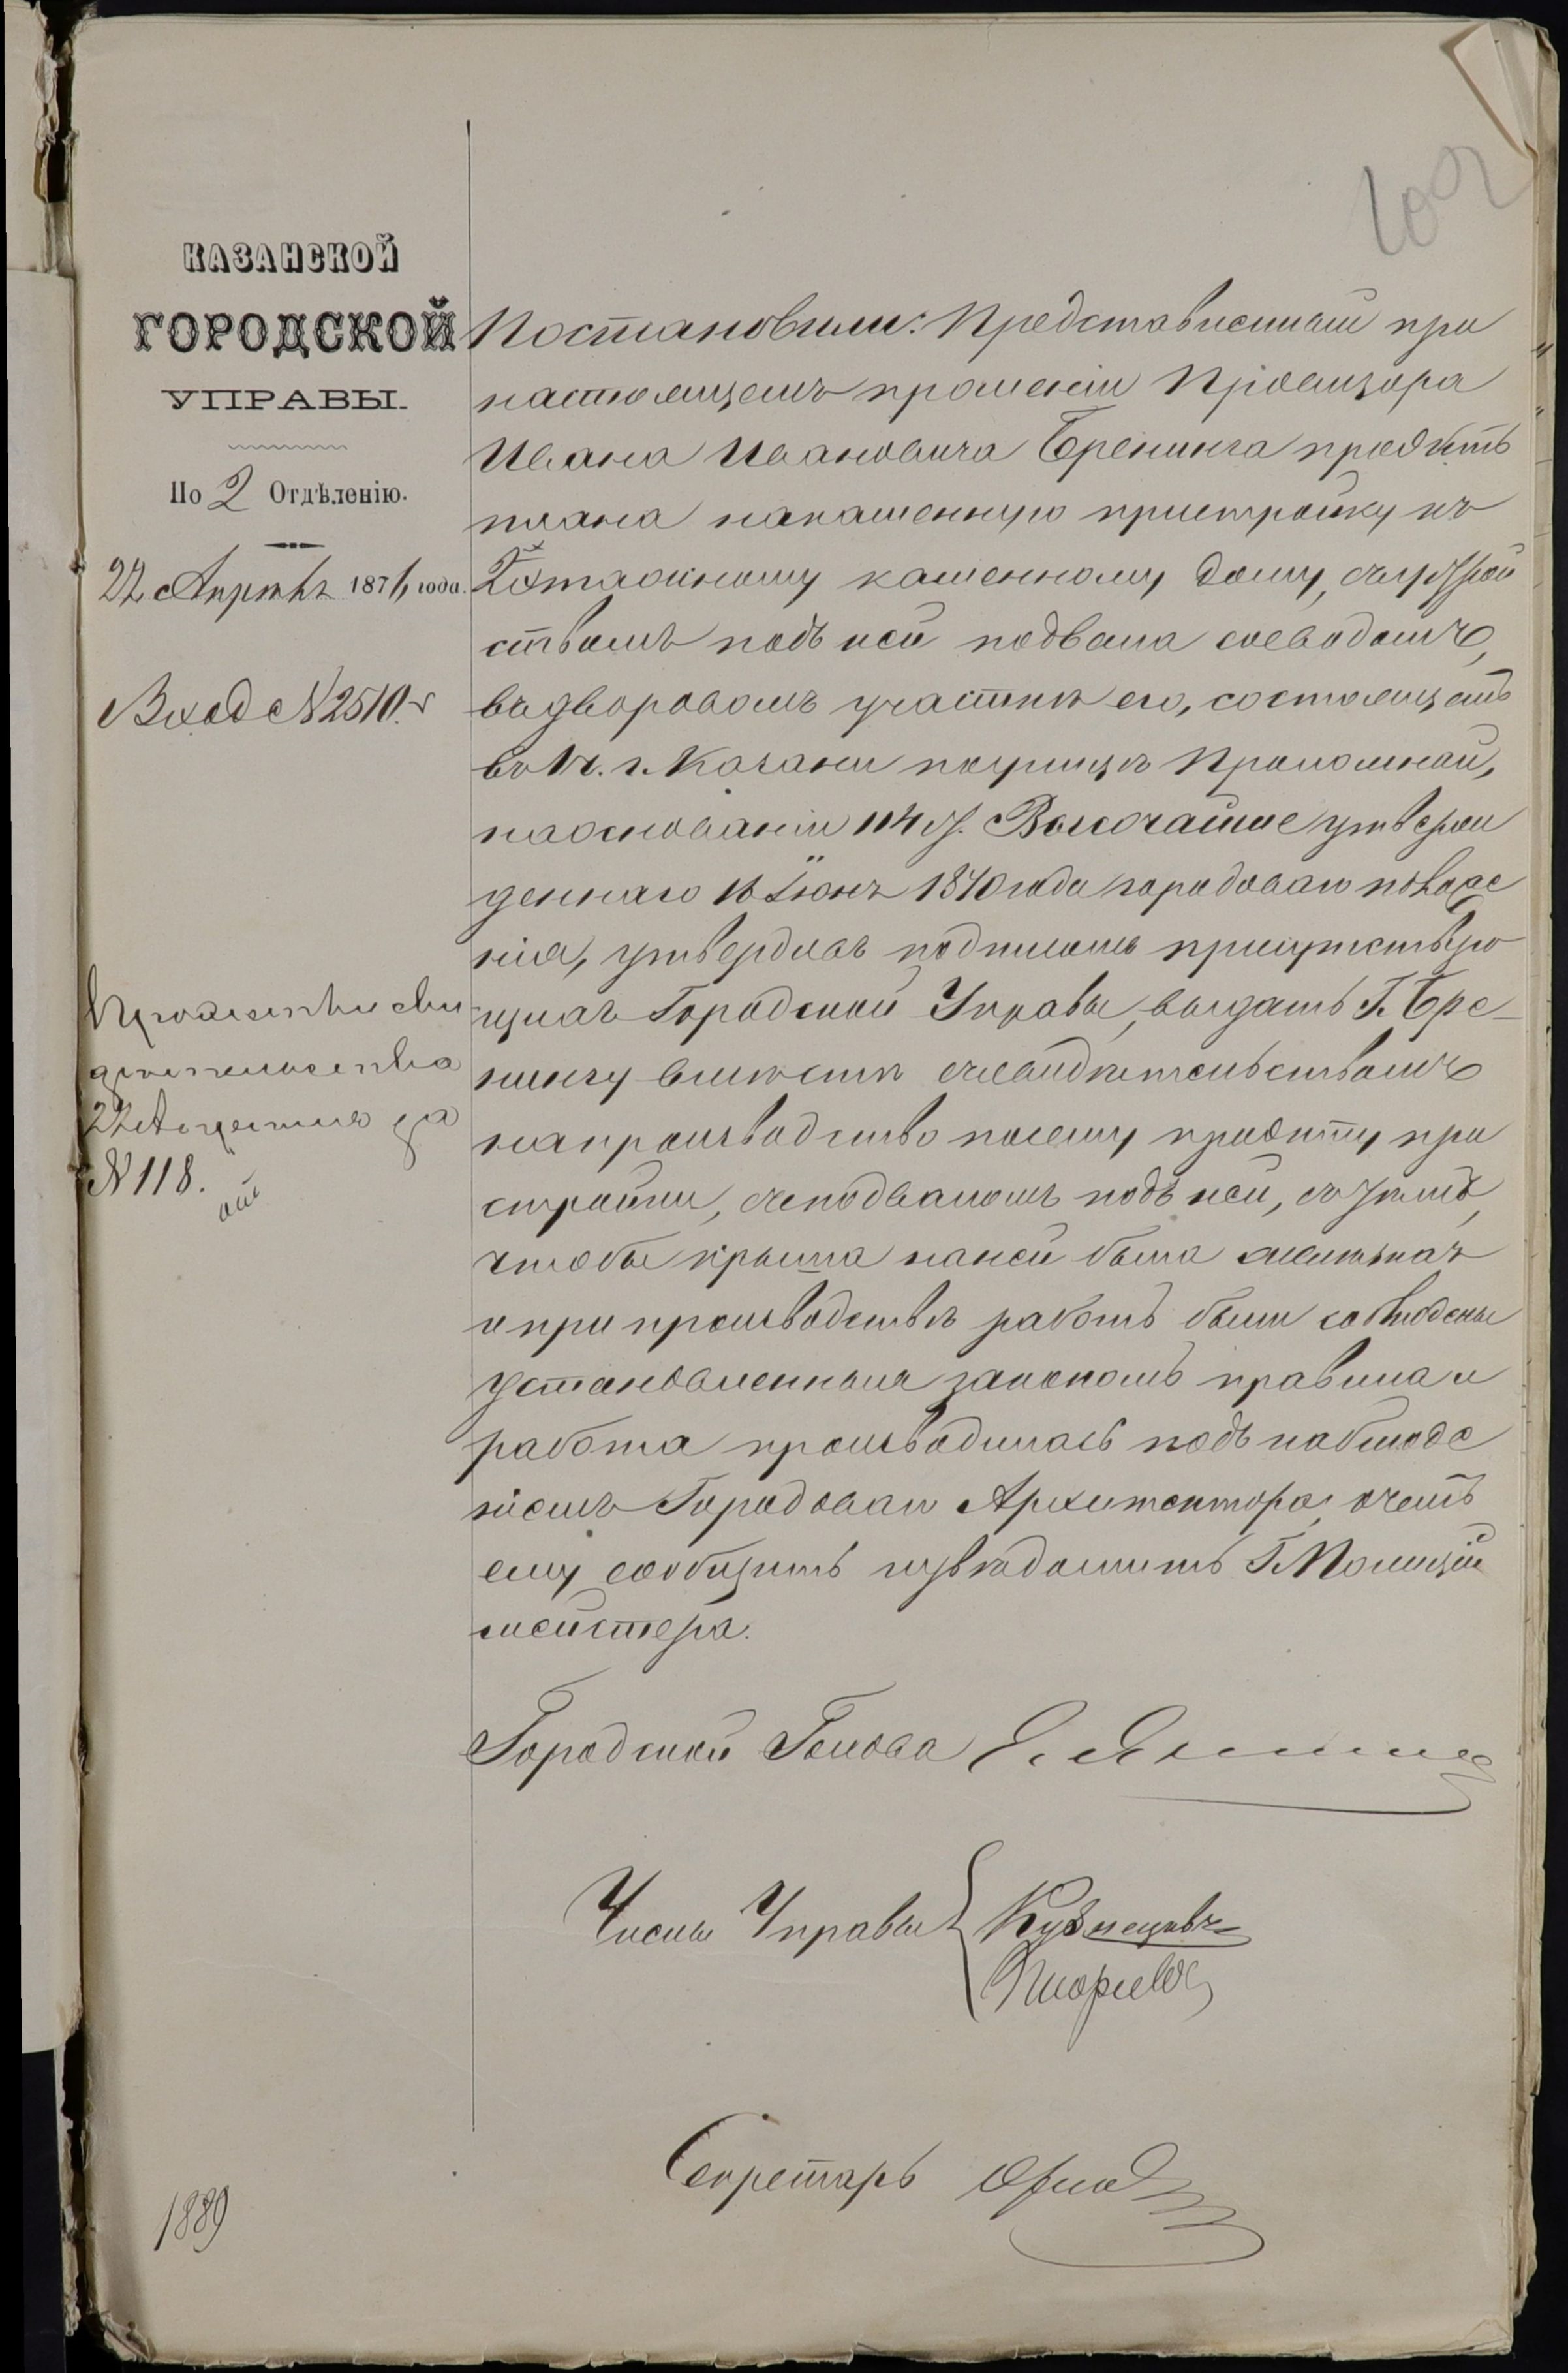 102
КАЗАНСКОЙ
ГОРОДСКОЙ
УПРАВЫ.
По 2 Отдѣленію.
22 Апрѣля 1871 года.
Вход № 2510.
Постановили: Представленный при
настоящемъ прошеніи Провизора
Ивана Ивановича Бренинга проэктъ
плана на каменную пристройку къ
2хъ этажному каменному дому, съ устрой
ствомъ подъ ней подвала со сводомъ,
въ дворовомъ участкѣ его, состоящемъ
во 1 ч. г. Казани по улицѣ Проломной,
на основаніи 114 ст. Высочайше утверж
деннаго 16 Іюня 1870 года городоваго положе
нія, утвердивъ подписомъ присутствую
щихъ Городской Управы, выдать Г. Бре-
нингу вмѣстѣ съ свидѣтельствомъ
на производство по сему проэкту при
стройки, съ подваломъ подъ ней, съ тѣмъ,
чтобы крыша на ней была желѣзная
и при производствѣ работъ были соблюдены
установленныя закономъ правила и
работа производилась подъ наблюде
ніемъ Городоваго Архитектора, о чемъ
ему сообщить и увѣдомить Г. Полицій
мейстера.
свидѣтельства
22 Апреля за
№ 118.
Городской Голова Е. Янишъ
Члены Управы Кузнецовъ
Секретарь
1889